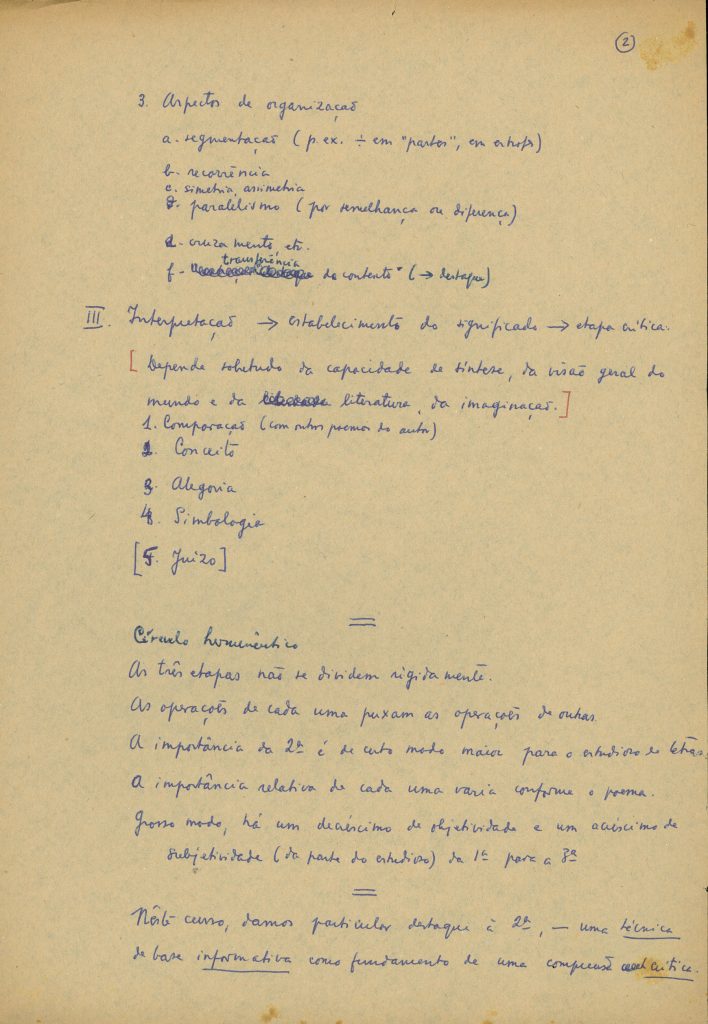 2
3. Aspectos de organização
a. segmentação (p. ex. ÷ em "partes", em estrofes)
b. recorrência
c. simetria, assimetria
d. paralelismo (por semelhança ou diferença)
d. cruzamento etc.
transferência
f - do contexto" (→ destaque)
III. Interpretação → estabelecimento do significado → etapa crítica.
[Depende sobretudo da capacidade de síntese, da visão geral do
mundo e da literatura, da imaginação.]
1. Comparação (com outros poemas do autor)
2. Conceito
3. Alegoria
4. Simbologia
[5. Juizo]
Círculo hermenêutico
As três etapas não se dividem rigidamente.
As operações de cada uma puxam as operações de outras.
A importância da 2ª é de certo modo maior para o estudioso de letras.
A importância relativa de cada uma varia conforme o poema.
Grosso modo, há um decréscimo de objetividade e um acréscimo de
subjetividade (da parte do estudioso) da 1ª para a 3ª
Nêste curso, damos particular destaque à 2ª, — uma técnica
de base informativa como fundamento de uma compreensão crítica.